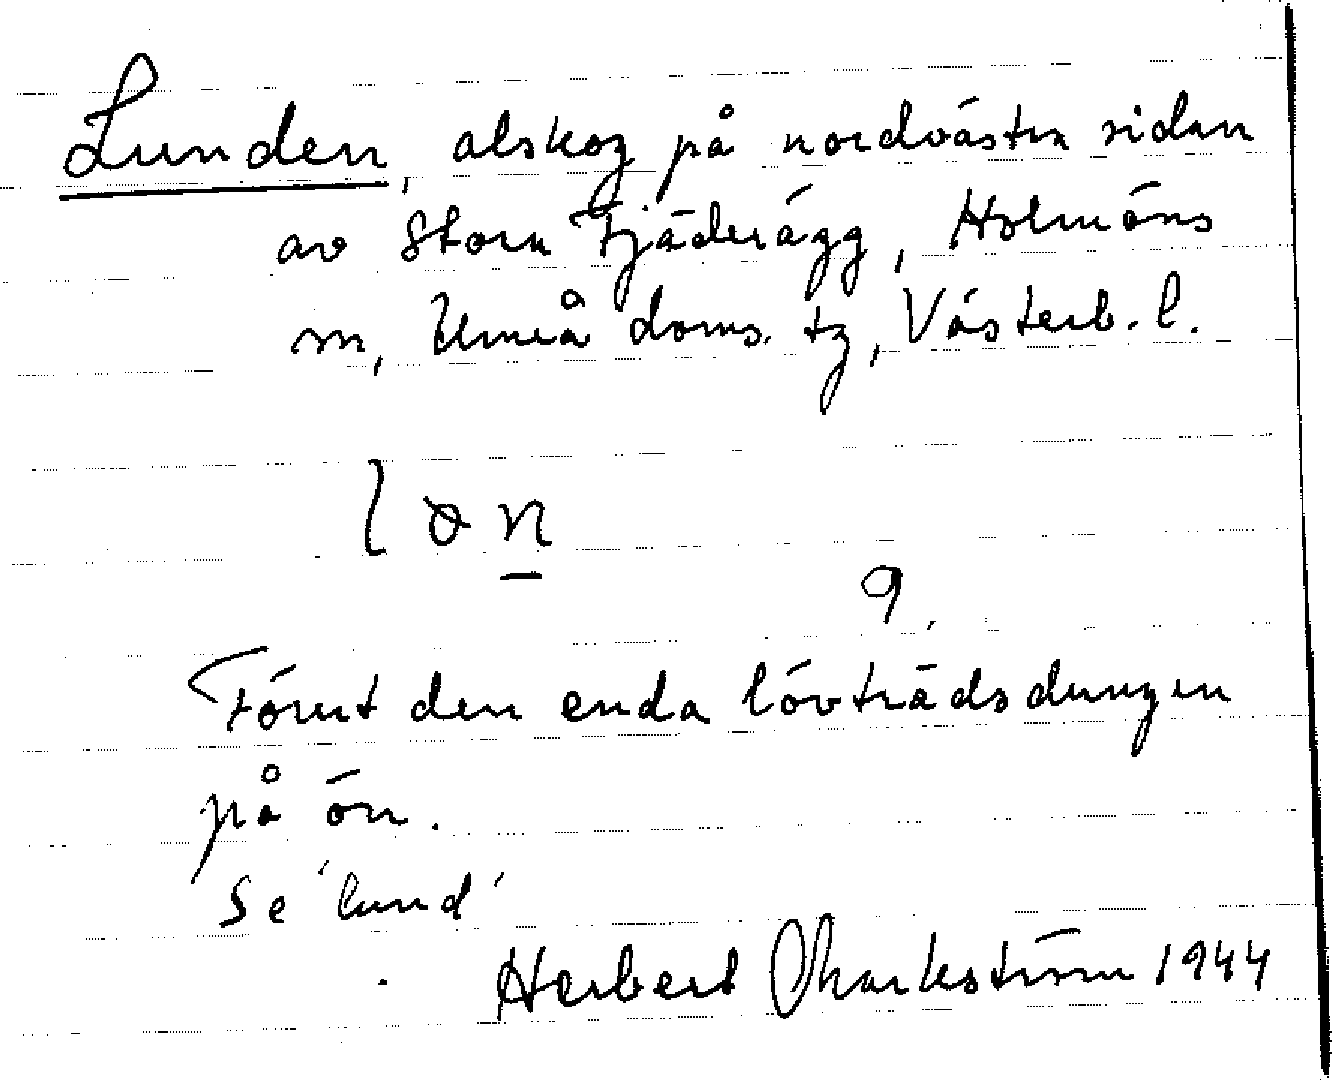 Lunden, alskog på nordvästra sidan
av Stora Fjäderägg, Holmöns
sn, Umeå doms. tg, Västerb. l.
q,
Förut den enda lövträdsdungen
på ön.
Se 'lund'
Herbert Markström 1944